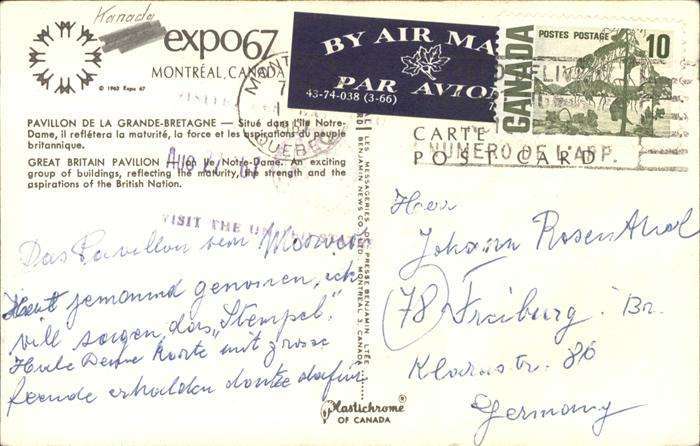 Kanada
expo67
MONTRÉAL, CANADA
© 1963 Expo 67
PAVILLON DE LA GRANDE-BRETAGNE — Situé dans l'Ile Notre-
Dame, il reflétera la maturité, la force et les aspirations du peuple
britannique.
GREAT BRITAIN PAVILION — on Ile Notre-Dame. An exciting
group of buildings, reflecting the maturity, the strength and the
aspirations of the British Nation.
VISIT THE
Das Pavillon vem
Hautt jemannd genoiren, ich
vill sorgen, das "Stempel".
Habe Deine Karte mit grosse
freunde erhalden dante dafür
BY AIR MA
PAR AVION
43-74-038 (3-66)
QUEBEC
POSTES POSTAGE
10
CANADA
CARTE
POST CARD
NUMERO DE L'APP.
LES MESSAGERIES DE PRESSE BENJAMIN LTÉE
BENJAMIN NEWS CO. LTD. MONTREAL 3, CANADA
Herr
Johann Rosenthal
78 Freiburg. Br.
Klarastr. 86
Germany
Plastichrome
OF CANADA